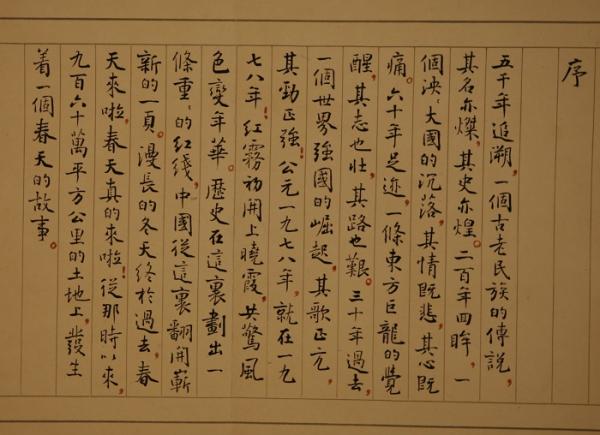 序
五千年追溯，一個古老民族的傳說，
其名亦燦，其史亦煌。二百年回眸，一
個泱々大國的沉落，其情既悲，其心既
痛。六十年足迹，一條東方巨龍的覺
醒，其志也壯，其路也艱。三十年過去，
一個世界強國的崛起，其歌正亢，
其勁正強！公元一九七八年，就在一九
七八年！紅霧初開上曉霞，共驚風
色變年華。歷史在這裏劃出一
條重々的紅綫，中國從這裏翻開嶄
新的一頁。漫長的冬天終於過去，春
天來啦，春天真的來啦！從那時以來，
九百六十萬平方公里的土地上，發生
着一個春天的故事。